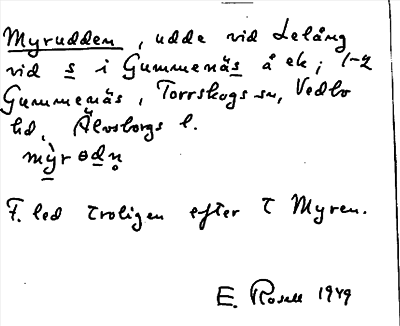 Myrudden, udde vid Lelång
vid s i Gummenäs å ek; 1-2
Gummenäs, Torrskogs sn, Vedbo
hd, Älvsborgs l.
mỳrødn̥
F. led troligen efter t Myren.
E. Rosell 1949